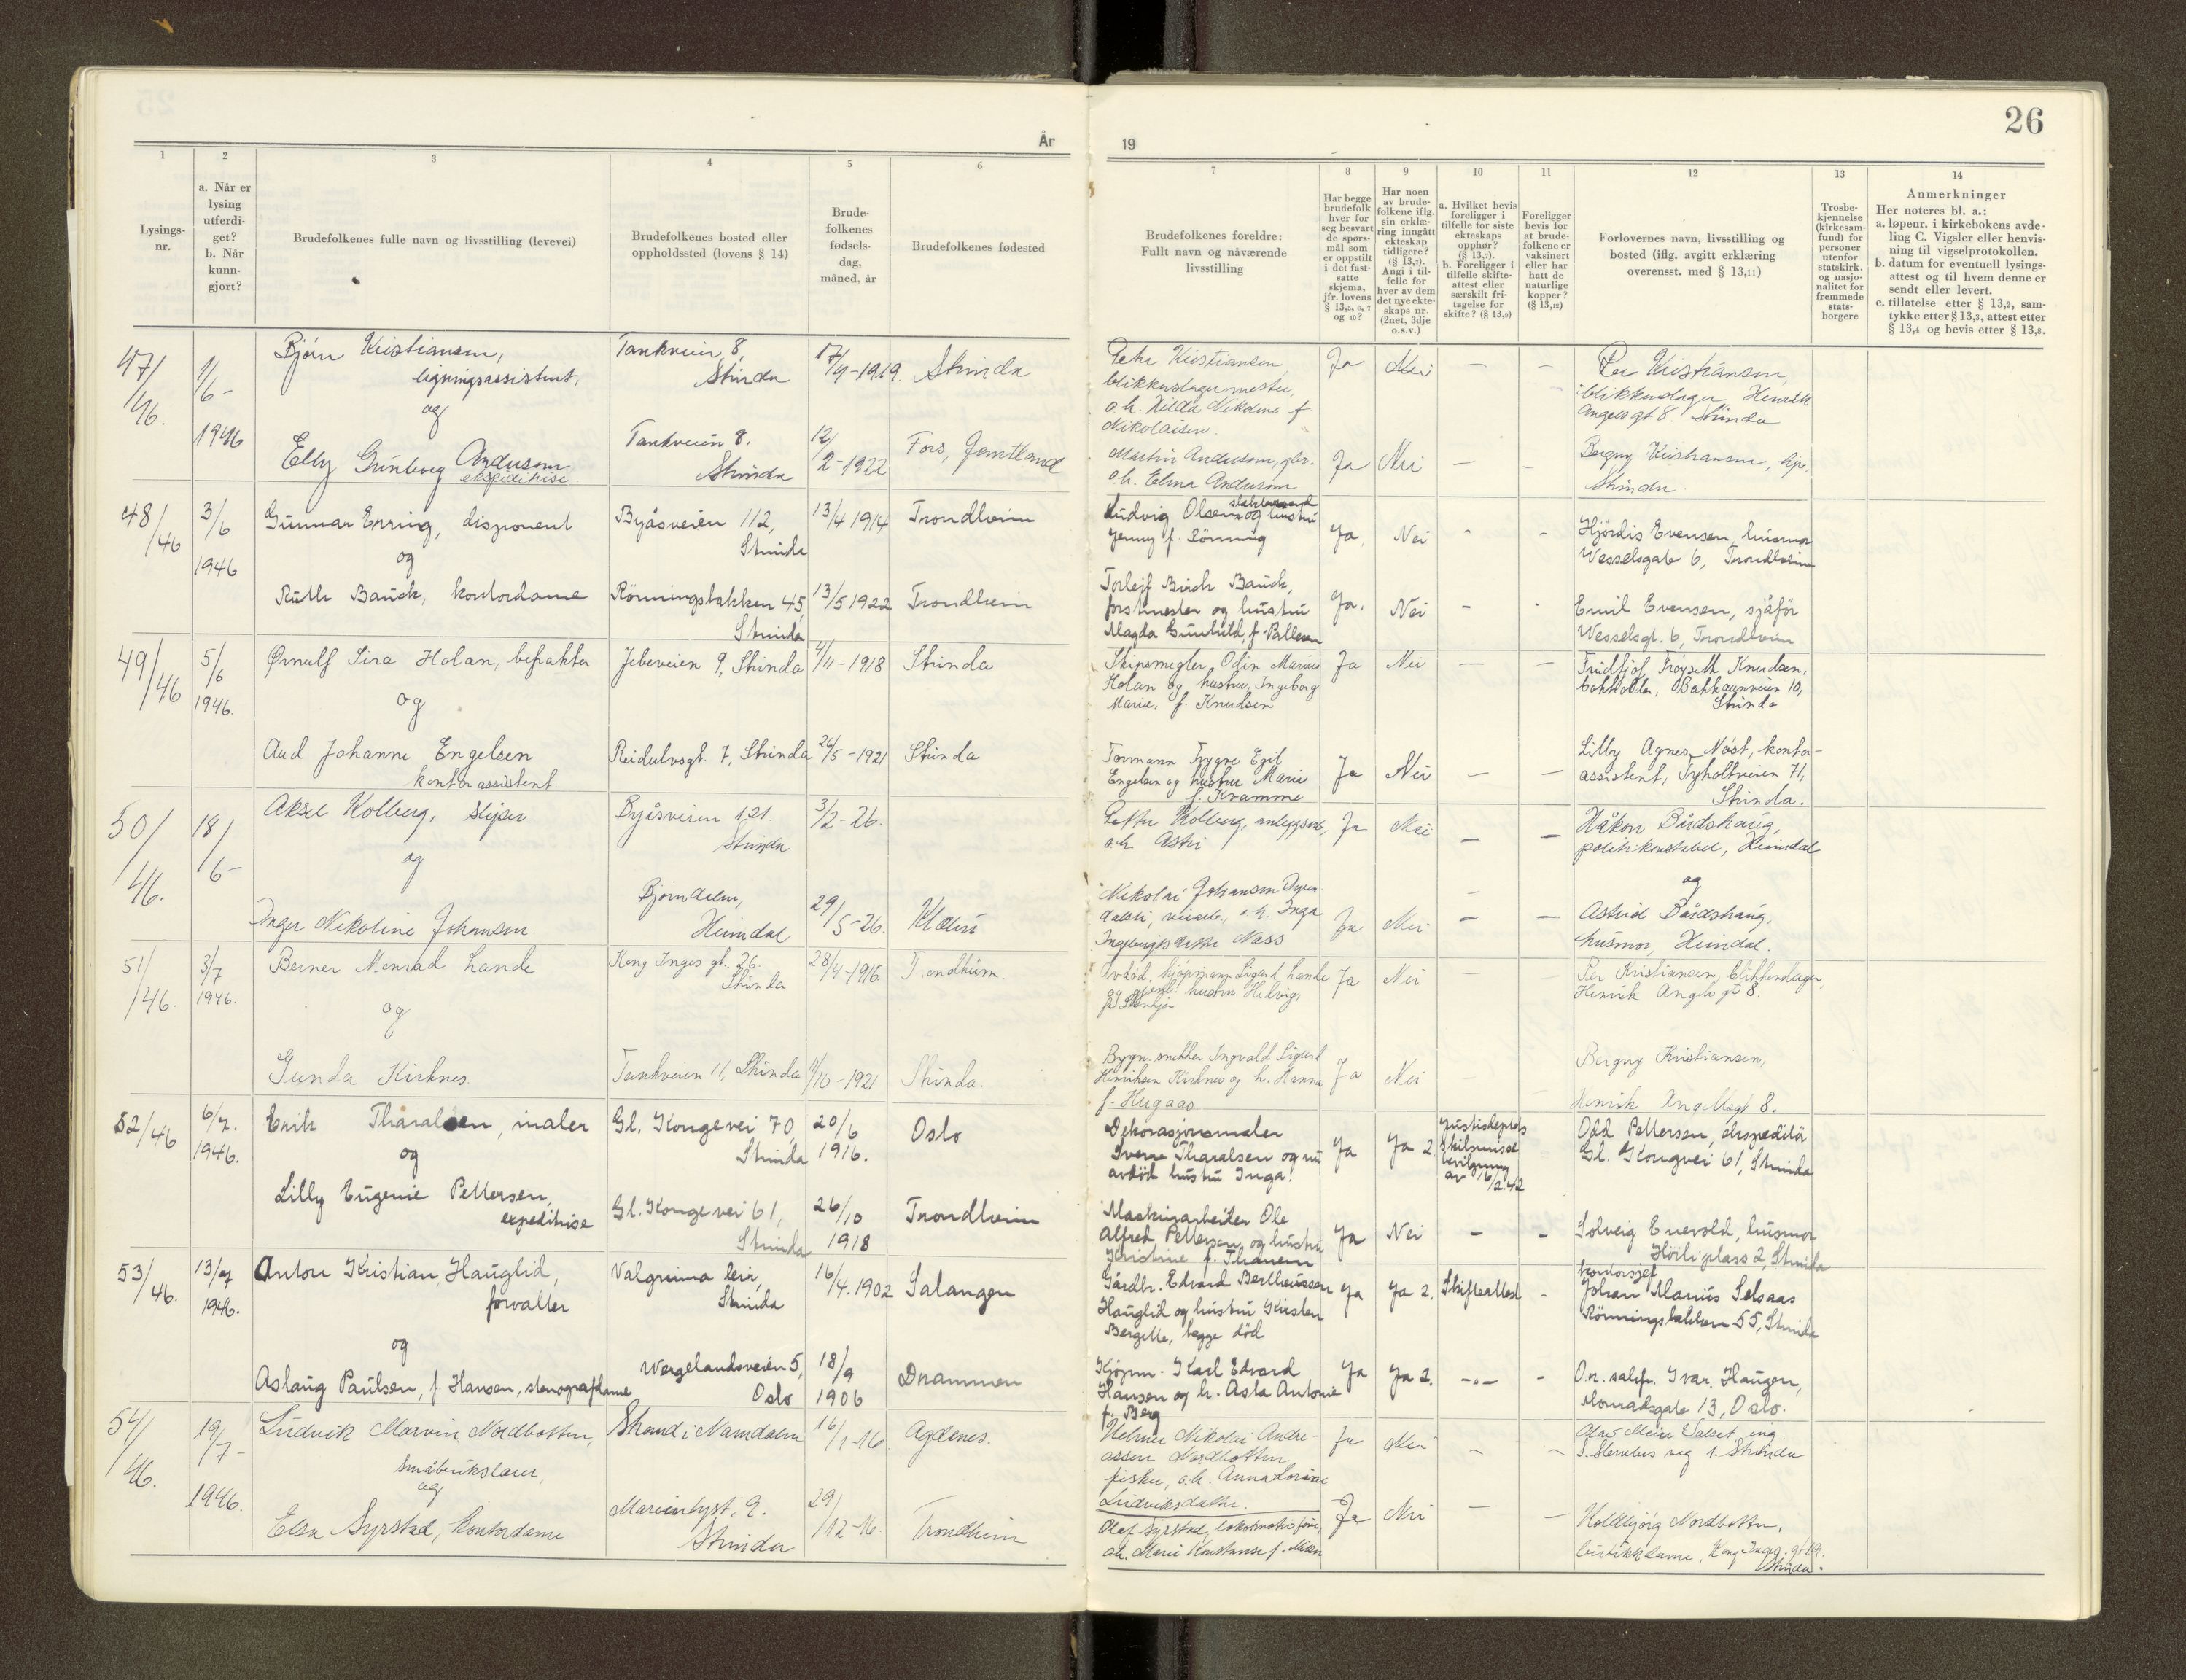 26
År
19
1
2
3
4
5
6
7
8
9
10
11
12
13
14
Lysings-
nr.
a. Når er
lysing
utferdi-
get?
b. Når
kunn-
gjort?
Brudefolkenes fulle navn og livsstilling (levevei)
Brudefolkenes bosted eller
oppholdssted (lovens § 14)
Brude-
folkenes
fødsels-
dag,
måned, år
Brudefolkenes fødested
Brudefolkenes foreldre:
Fullt navn og nåværende
livsstilling
Har begge
brudefolk
hver for
seg besvart
de spørs-
mål som
er oppstilt
i det fast-
satte
skjema,
jfr. lovens
§ 13,5, 6, 7
og 10?
Har noen
av brude-
folkene iflg.
sin erklæ-
ring inngått
ekteskap
tidligere?
(§ 13,7).
Angi i til-
felle for
hver av dem
det nye ekte-
skaps nr.
(2net, 3dje
o.s.v.)
a. Hvilket bevis
foreligger i
tilfelle for siste
ekteskaps
opphør?
(§ 13,7).
b. Foreligger i
tilfelle skifte-
attest eller
særskilt fri-
tagelse for
skifte? (§ 13,9)
Foreligger
bevis for
at brude-
folkene er
vaksinert
eller har
hatt de
naturlige
kopper?
(§ 13,12)
Forlovernes navn, livsstilling og
bosted (iflg. avgitt erklæring
overensst. med § 13,11)
Trosbe-
kjennelse
(kirkesam-
fund) for
personer
utenfor
statskirk.
og nasjo-
nalitet for
fremmede
stats-
borgere
Anmerkninger
Her noteres bl. a.:
a. løpenr. i kirkebokens avde-
ling C. Vigsler eller henvis-
ning til vigselprotokollen.
b. datum for eventuell lysings-
attest og til hvem denne er
sendt eller levert.
c. tillatelse etter § 13,2, sam-
tykke etter § 13,3, attest etter
§ 13,4 og bevis etter § 13,8.
47/46. 1/6- 1946
Bjørn Kristiansen,
ligningsassistent,
og
Tankveien 8,
Strinda
17/4-1919. Strinda
Petter Kristiansen,
blikkenslagermester,
o.h. Hilda Nikoline f.
Nikolaisen.
Ja Nei — —
Per Kristiansen,
blikkenslager, Henrik
Angelsgt 8. Strinda
Elly Gunborg Andersson
ekspeditrise.
Tankveien 8.
Strinda
12/2-1922 Fors, Jemtland
Martin Andersson, gbr.
o.h. Elma Andersson
Ja Nei — —
Bergny Kristiansen,
Strinda.
48/46 3/6 1946
Gunnar Enning, disponent
og
Byåsveien 112,
Strinda
13/4 1914 Trondheim
Ludvig Olsen og hustru
Jenny f. Rönning
Ja. Nei - -
Hjördis Evensen, husmor
Wesselsgate 6, Trondheim
Ruth Bauck, kontordame
Rönningsbakken 45,
Strinda
13/5 1922 Trondheim
Torleif Birch Bauck,
forstmester og hustru
Magda Gunhild, f. Pallesen
Ja. Nei - -
Emil Evensen, sjåför
Wesselsgt. 6, Trondheim
49/46 5/6 1946.
Ørnulf Sira Holan, befrakter
og
Jebeveien 9, Strinda 4/11-1918 Strinda
Skipsmegler Odin Marius
Holan og hustru Ingeborg
Marie, f. Knudsen
Ja Nei — —
Fridtjof Frøyseth Knudsen,
Bakkaunveien 10,
Strinda
Aud Johanne Engelsen
kontorassistent.
Reidulvsgt. 7, Strinda 26/5-1921 Strinda
Formann Trygve Egil
Engelsen og hustru Marie
f. Kramme
Ja Nei — —
Lilly Agnes Nøst, kontor-
assistent, Tyholtveien 71,
Strinda.
50/46. 18/6-
Aksel Kolberg, sliper
og
Byåsveien 121.
Strinda
3/2-26.
Petter Kolberg, anleggsarb,
o.h. Astri
Ja Nei — —
Håkon Bårdshaug,
politikonstabel, Heimdal
og
Inger Nikoline Johansen.
Bjørndalen,
Heimdal
29/5-26. Klæbu
Nikolai Johansen
o.h. Inga
Ingebrigtsdatter Næss
Ja Nei — —
Astrid Bårdshaug,
husmor, Heimdal.
51/46. 3/7 1946.
Berner Monrad Lande
og
Kong Inges gt. 26.
Strinda
28/4-1916. Trondheim.
Avdød kjøpmann Sigurd Lande
og gjenl. hustru Hedvig,
Ja Nei —
Per Kristiansen, blikkenslager,
Henrik Angelsgt 8.
Gunda Kirknes.
Tankveien 11, Strinda 11/10-1921 Strinda.
Bygn. snekker Ingvald Sigurd
Henriksen Kirknes og h. Hanna
f. Hugaas
Ja Nei
Bergny Kristiansen,
Henrik Angellsgt 8.
52/46 6/7. 1946.
Erik Tharalsen, maler
og
Gl. Kongevei 70,
Strinda
20/6 1916. Oslo
Dekorasjonsmaler
Sverre Tharalsen og nu
avdöd hustru Inga.
Ja Ja 2.
Justisdeptets
skilsmisse
bevilgning
av 16/2.42
Odd Pettersen, ekspeditör
Gl. Kongevei 61, Strinda
Lilly Eugenie Pettersen,
expeditrise
Gl. Kongevei 61,
Strinda
26/10 1918 Trondheim
Maskinarbeider Ole
Alfred Pettersen og hustru
Kristine f. Thanem
Ja Nei - -
Solveig Enevold, husmor
Höiliplass 2, Strinda
53/46. 13/7 1946.
Anton Kristian Hauglid,
forvalter
og
Valgrinna leir,
Strinda
16/4.1902 Salangen
Gårdbr. Edvard Bertheussen
Hauglid og hustru Kirsten
Bergette, begge död
Ja Ja 2. Skifteattest -
kontorsjef
Johan Marius Selsaas
Rönningsbakken 55, Strinda
Aslaug Paulsen, f. Hansen, stenografdame
Wergelandsveien 5,
Oslo
18/9 1906 Drammen
Kjøpm. Karl Edvard
Hansen og h. Asta Antonie
f. Berg
Ja Ja 2. -"- -
O.r. sakf. Ivar Haugen,
Monradsgate 13, Oslo.
54/46. 19/7- 1946.
Ludvik Marvin Nordbotten,
småbrukslærer,
og
Strand i Namdalen 16/1-16 Agdenes.
Helmer Nikolai Andre-
assen Nordbotten,
fisker, o.h. Anna Lorine
Ludviksdatter.
Ja Nei — —
Olav Meier Valset, ing.
Strinda
Elsa Syrstad, kontordame
Marienlyst 9.
Strinda
29/12-16. Trondheim
Olaf Syrstad,
o.h. Marie Konstanse f.
Ja Nei — —
Holdbjørg Nordbotten,
butikkdame, Kong Inges gt 19.
Strinda.